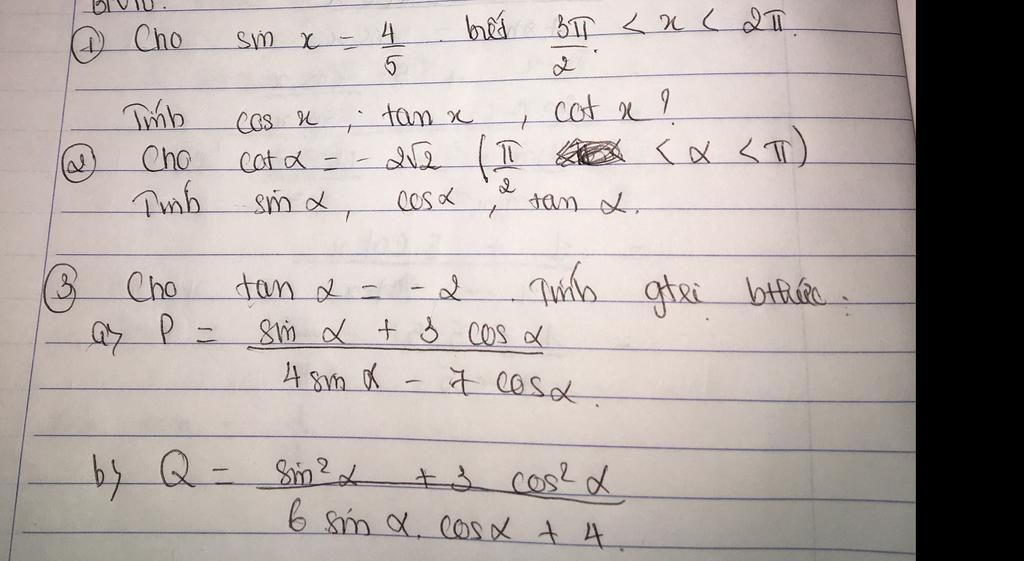 ① Cho sin x = 4/5 . biết 3π/2 < x < 2π.
Tính cos x ; tan x , cot x ?
② Cho cot α = - 2√2 ( π/2 < α < π)
Tính sin α, cos α, tan α.
③ Cho tan α = - 2 . Tính gtrị bthức :
a, P = (sin α + 3 cos α)/(4 sin α - 7 cos α).
b, Q = (sin² α + 3 cos² α)/(6 sin α. cos α + 4).